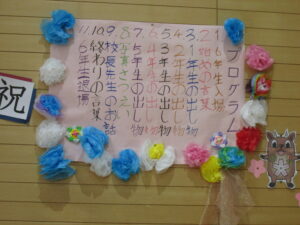 プログラム
1. 6年生入場
2. 始めの言葉
3. 1年生の出し物
4. 3年生の出し物
5. 2年生の出し物
6. 4年生の出し物
7. 5年生の出し物
8. 6年生の出し物
9. 校長先生のお話
10. 終わりの言葉
11. 6年生退場
祝